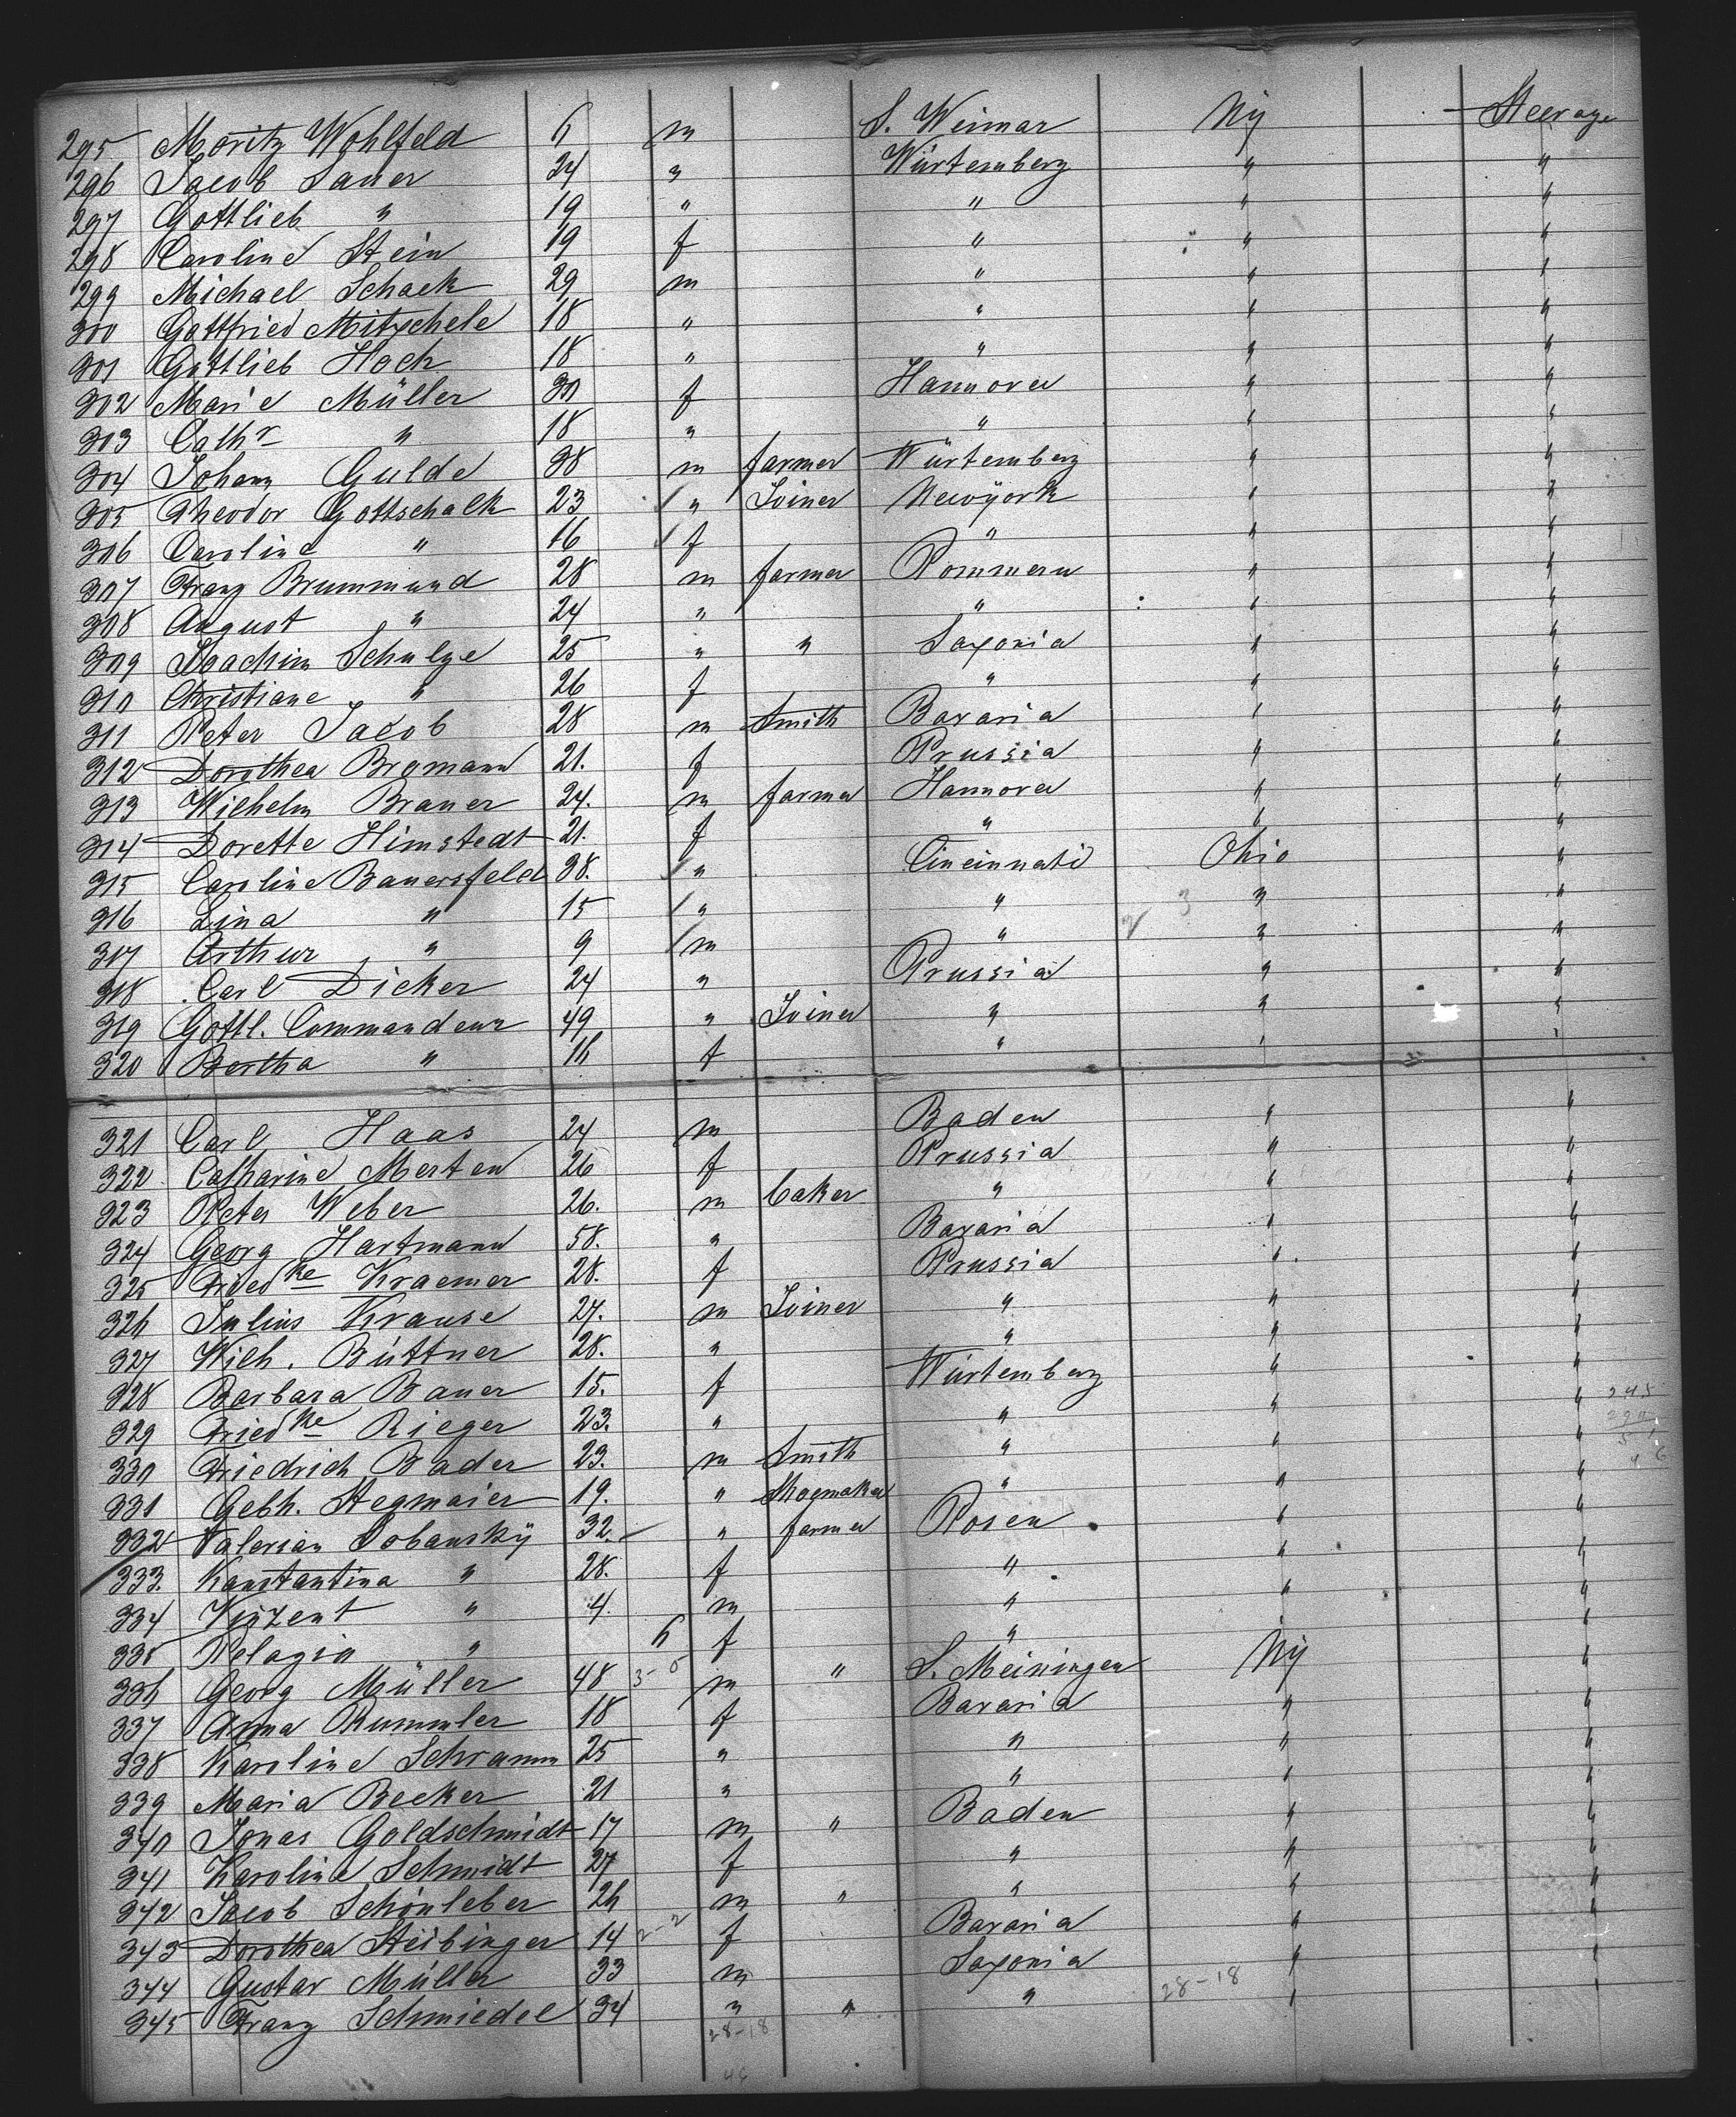 295 Moritz Wohlfeld 6 m S. Weimar Ny Steerage
296 Jacob Sauer 24 " Würtemberg " "
297 Gottlieb " 19 " " " "
298 Caroline Stein 19 f " " "
299 Michael Schack 29 m " " "
300 Gottfried Mitzschele 18 " " " "
301 Gottlieb Hock 18 " " " "
302 Marie Müller 30 f Hannover " "
303 Cathr " 18 " " " "
304 Johann Gulde 38 m farmer Würtemberg " "
305 Theodor Gottschalk 23 " Joiner Newyork " "
306 Caroline " 16 f " " "
307 Franz Brummund 28 m farmer Pommern " "
308 August " 24 " " " "
309 Joachim Schulze 25 " " Saxonia " "
310 Christiane " 26 f " " "
311 Peter Jacob 28 m Smith Bavaria " "
312 Dorothea Brömann 21. f Prussia " "
313 Wilhelm Brauer 24. m farmer Hannover " "
314 Dorette Himstedt 21. f " " "
315 Caroline Bauersfeld 38. " Cincinnati Ohio "
316 Lina " 15 " " " "
317 Arthur " 9 m " " "
318 Carl Dicker 24 " Prussia " "
319 Gottl. Commandeur 49 " Joiner " " "
320 Bertha " 16 f " " "
321 Carl Haas 24 m Baden " "
322 Catharine Merten 26 f Prussia " "
323 Peter Weber 26. m baker " " "
324 Georg Hartmann 58. " Bavaria " "
325 Friedke Kraemer 28. f Prussia " "
326 Julius Krause 27. m Joiner " " "
327 Wilh. Büttner 28. " " " "
328 Barbara Bauer 15. f Würtemberg " "
329 Friedke Rieger 23. " " " "
330 Friedrich Bader 23. m Smith " " "
331 Gebh. Stegmaier 19. " Shoemaker " " "
332 Valerian Dobansky 32. " farmer Posen " "
333. Konstantina " 28. f " " "
334 Vinzent " 4. m " " "
335 Pelagia " 6 f " " "
336 Georg Müller 48 m " S. Meiningen Ny "
337 Anna Rummler 18 f Bavaria " "
338 Karoline Schramm 25 " " " "
339 Maria Becker 21 " " " "
340 Jonas Goldschmidt 17 m " Baden " "
341 Karoline Schmidt 27 f " " "
342 Jacob Schönleber 26 m " " " "
343 Dorothea Steibinger 14 2-2 f Bavaria " "
344 Gustav Müller 33 m Saxonia " "
345 Franz Schmiedel 34 " " " 28-18 " "
28-18